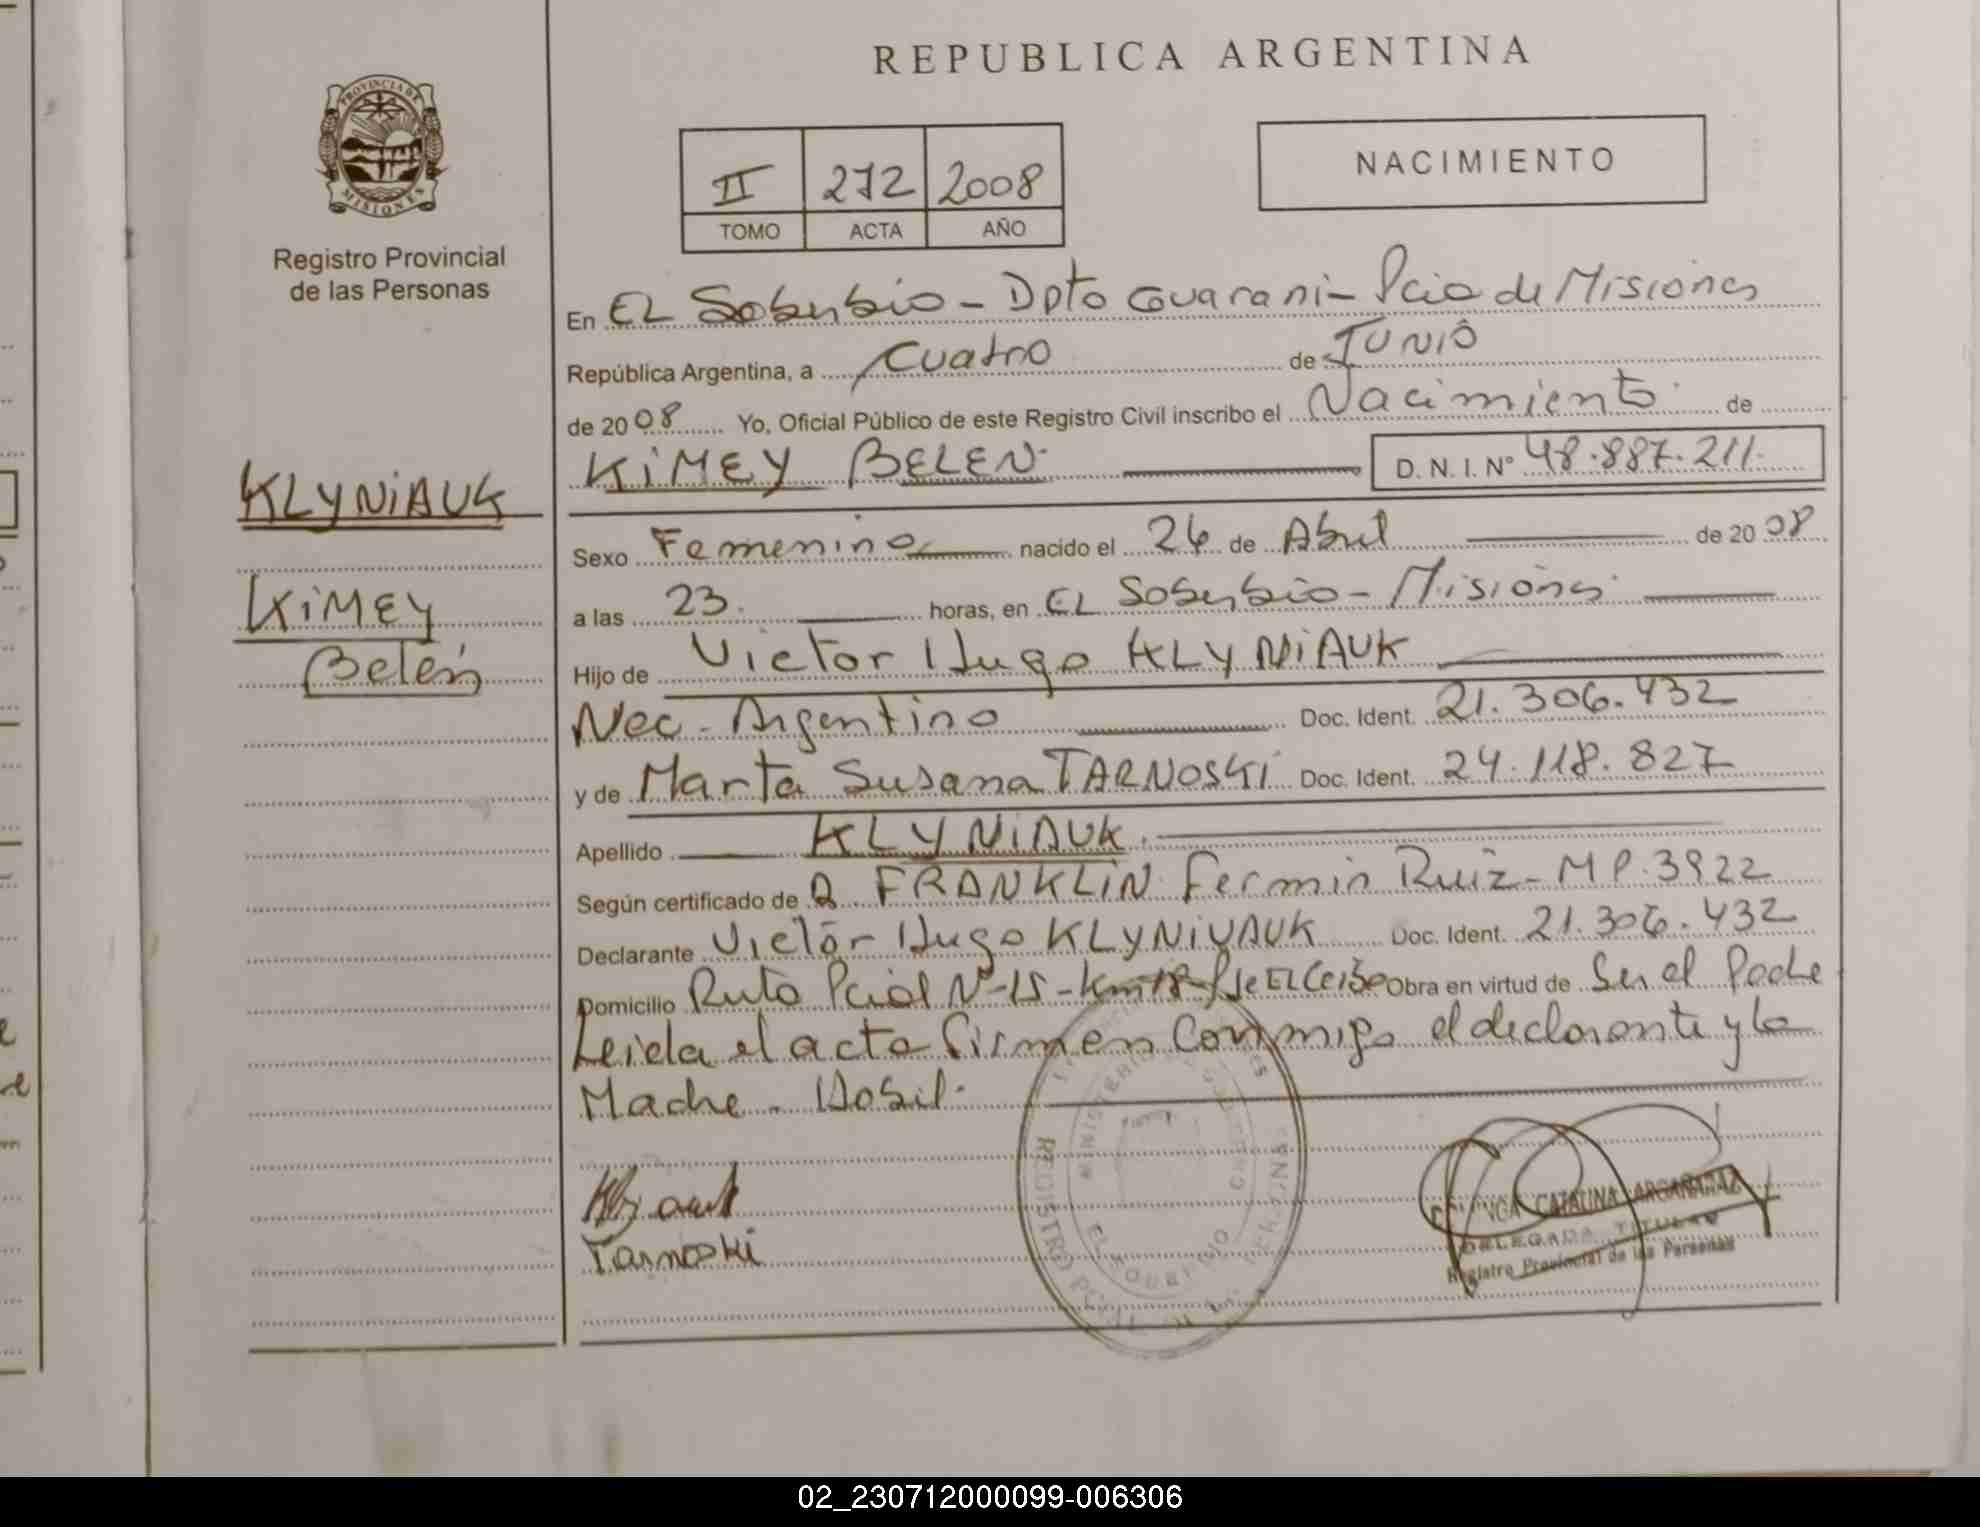 REPUBLICA ARGENTINA
PROVINCIA DE
MISIONES
Registro Provincial
de las Personas
II 272 2008
TOMO ACTA AÑO
NACIMIENTO
En EL Soberbio - Dpto Guarani - Pcia de Misiones
República Argentina, a cuatro de JUNIO
de 2008 Yo, Oficial Público de este Registro Civil inscribo el Nacimiento de
KiMEY BELEN D.N.I. Nº 48.887.211
KLYNiAUK
KiMEY
Belén
Sexo Femenino nacido el 26 de Abril de 2008
a las 23. horas, en EL Soberbio - Misiones
Hijo de Victor Hugo KLYNiAUK
Nac. Argentino Doc. Ident. 21.306.432
y de Marta Susana TARNOSKi Doc. Ident. 24.118.827
Apellido KLYNiAUK.
Según certificado de FRANKLiN Fermin Ruiz - MP.3922
Declarante Victor Hugo KLYNiVAUK Doc. Ident. 21.306.432
Domicilio Ruta Pcial Nº 15 - Km 18 - Obra en virtud de Ser el Padre
Leida el acta firman conmigo el declarante y la
Madre - Habil.
Tarnoski
MINISTERIO
REGISTRO
EL SOBERBIO
CATALINA
DELEGADA TITULAR
Registro Provincial de las Personas
02_230712000099-006306